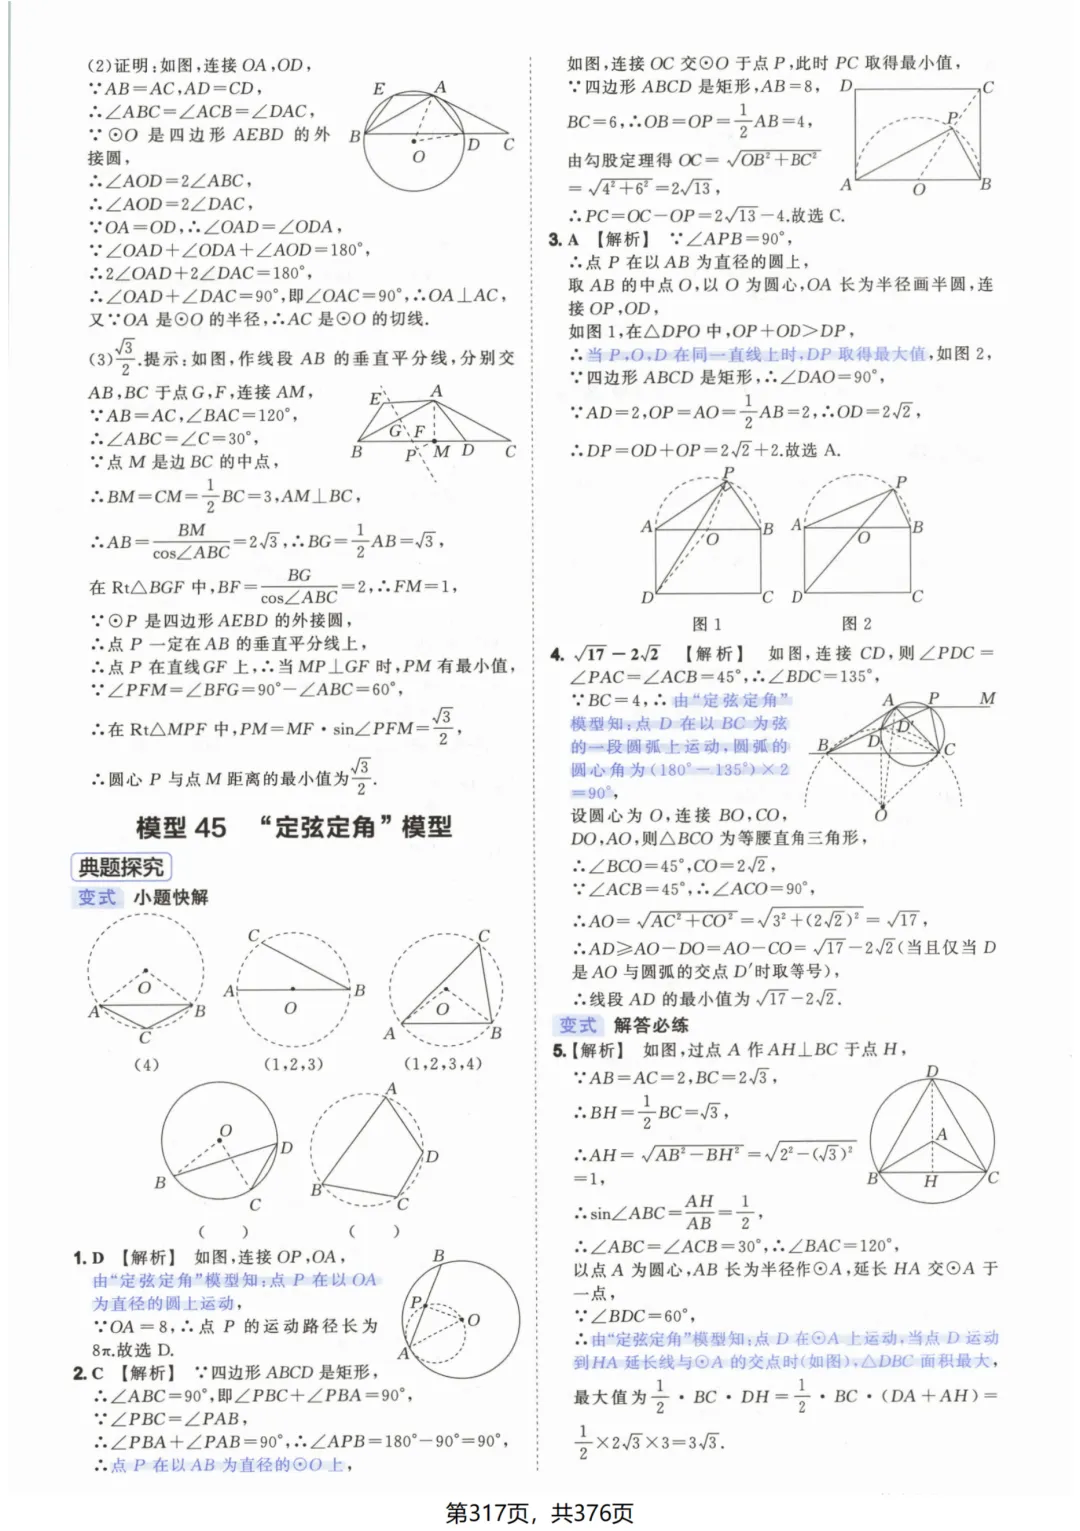 (2)证明:如图,连接 OA,OD,
∵AB=AC,AD=CD,
∴∠ABC=∠ACB=∠DAC,
∵⊙O 是四边形 AEBD 的外
接圆,
∴∠AOD=2∠ABC,
∴∠AOD=2∠DAC,
∵OA=OD,∴∠OAD=∠ODA,
∵∠OAD+∠ODA+∠AOD=180°,
∴2∠OAD+2∠DAC=180°,
∴∠OAD+∠DAC=90°,即∠OAC=90°,∴OA⊥AC,
又∵OA 是⊙O 的半径,∴AC 是⊙O 的切线.
E A
B D C
O
(3)√3/2.提示:如图,作线段 AB 的垂直平分线,分别交
AB,BC 于点G,F,连接 AM,
∵AB=AC,∠BAC=120°,
∴∠ABC=∠C=30°,
∵点 M 是边 BC 的中点,
∴BM=CM=1/2BC=3,AM⊥BC,
∴AB=BM/cos∠ABC=2√3,∴BG=1/2AB=√3,
在 Rt△BGF 中,BF=BG/cos∠ABC=2,∴FM=1,
∵⊙P 是四边形 AEBD 的外接圆,
∴点 P 一定在 AB 的垂直平分线上,
∴点 P 在直线GF 上,∴当 MP⊥GF 时,PM 有最小值,
∵∠PFM=∠BFG=90°-∠ABC=60°,
∴在 Rt△MPF 中,PM=MF·sin∠PFM=√3/2,
∴圆心 P 与点 M 距离的最小值为√3/2.
E A
G F
B P M D C
模型 45 “定弦定角”模型
典题探究
变式 小题快解
O
A B
C
(4)
C
A B
O
(1,2,3)
C
O
A B
(1,2,3,4)
O
D
B
C
( )
A
D
B
C
( )
1. D 【解析】 如图,连接 OP,OA,
由“定弦定角”模型知:点 P 在以 OA
为直径的圆上运动,
∵OA=8,∴点 P 的运动路径长为
8π.故选 D.
B
P
O
A
2. C 【解析】 ∵四边形 ABCD 是矩形,
∴∠ABC=90°,即∠PBC+∠PBA=90°,
∵∠PBC=∠PAB,
∴∠PBA+∠PAB=90°,∴∠APB=180°-90°=90°,
∴点 P 在以 AB 为直径的⊙O 上,
如图,连接 OC 交⊙O 于点 P,此时 PC 取得最小值,
∵四边形 ABCD 是矩形,AB=8,
BC=6,∴OB=OP=1/2AB=4,
由勾股定理得 OC=√(OB²+BC²)
=√(4²+6²)=2√13,
∴PC=OC-OP=2√13-4.故选 C.
D C
P
A O B
3. A 【解析】 ∵∠APB=90°,
∴点 P 在以 AB 为直径的圆上,
取 AB 的中点 O,以 O 为圆心,OA 长为半径画半圆,连
接 OP,OD,
如图 1,在△DPO 中,OP+OD>DP,
∴当 P,O,D 在同一直线上时,DP 取得最大值,如图 2,
∵四边形 ABCD 是矩形,∴∠DAO=90°,
∵AD=2,OP=AO=1/2AB=2,∴OD=2√2,
∴DP=OD+OP=2√2+2.故选 A.
P
A B
O
D C
图 1
P
A B
O
D C
图 2
4. √17-2√2 【解析】 如图,连接 CD,则∠PDC=
∠PAC=∠ACB=45°,∴∠BDC=135°,
∵BC=4,∴由“定弦定角”
模型知:点 D 在以 BC 为弦
的一段圆弧上运动,圆弧的
圆心角为(180°-135°)×2
=90°,
设圆心为 O,连接 BO,CO,
DO,AO,则△BCO 为等腰直角三角形,
∴∠BCO=45°,CO=2√2,
∵∠ACB=45°,∴∠ACO=90°,
∴AO=√(AC²+CO²)=√(3²+(2√2)²)=√17,
∴AD≥AO-DO=AO-CO=√17-2√2(当且仅当 D
是 AO 与圆弧的交点 D′时取等号),
∴线段 AD 的最小值为√17-2√2.
A P M
D D′
B C
O
变式 解答必练
5.【解析】 如图,过点 A 作AH⊥BC 于点 H,
∵AB=AC=2,BC=2√3,
∴BH=1/2BC=√3,
∴AH=√(AB²-BH²)=√(2²-(√3)²)
=1,
∴sin∠ABC=AH/AB=1/2,
∴∠ABC=∠ACB=30°,∴∠BAC=120°,
以点 A 为圆心,AB 长为半径作⊙A,延长 HA 交⊙A 于
一点,
∵∠BDC=60°,
∴由“定弦定角”模型知:点 D 在⊙A 上运动,当点 D 运动
到HA 延长线与⊙A 的交点时(如图),△DBC 面积最大,
最大值为1/2·BC·DH=1/2·BC·(DA+AH)=
1/2×2√3×3=3√3.
D
A
B H C
第317页，共376页